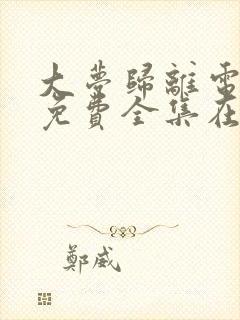 大夢歸離電
免費全集在
鄭威